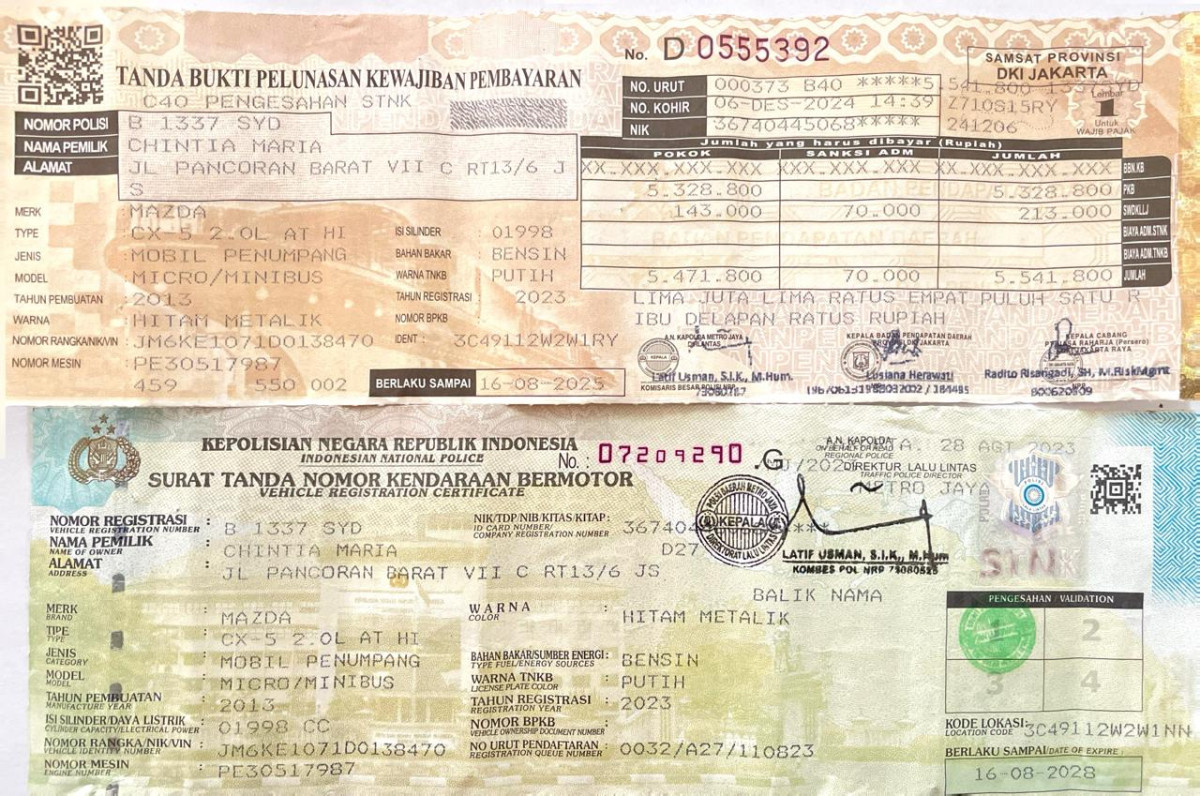 No. D 0555392
TANDA BUKTI PELUNASAN KEWAJIBAN PEMBAYARAN
C40 PENGESAHAN STNK
SAMSAT PROVINSI
DKI JAKARTA
NO. URUT 000373 B40 *****5.541.800
NO. KOHIR 06-DES-2024 14:39 Z710S15RY
NIK 36740445068***** 241206
Lembar
1
Untuk
WAJIB PAJAK
NOMOR POLISI B 1337 SYD
NAMA PEMILIK CHINTIA MARIA
ALAMAT JL PANCORAN BARAT VII C RT13/6 J
S
Jumlah yang harus dibayar (Rupiah)
POKOK SANKSI ADM JUMLAH
XX.XXX.XXX.XXX XX.XXX.XXX.XXX XX.XXX.XXX.XXX BBN.KB
5.328.800 5.328.800 PKB
143.000 70.000 213.000 SWDKLLJ
BIAYA ADM.STNK
BIAYA ADM.TNKB
5.471.800 70.000 5.541.800 JUMLAH
LIMA JUTA LIMA RATUS EMPAT PULUH SATU R
IBU DELAPAN RATUS RUPIAH
MERK : MAZDA
TYPE : CX-5 2.0L AT HI ISI SILINDER : 01998
JENIS : MOBIL PENUMPANG BAHAN BAKAR : BENSIN
MODEL : MICRO/MINIBUS WARNA TNKB : PUTIH
TAHUN PEMBUATAN : 2013 TAHUN REGISTRASI : 2023
WARNA : HITAM METALIK NOMOR BPKB :
NOMOR RANGKA/NIK/VIN : JM6KE1071D0138470 IDENT : 3C49112W2W1RY
NOMOR MESIN : PE30517987
459 550 002 BERLAKU SAMPAI 16-08-2025
KEPALA BADAN PENDAPATAN DAERAH
KEPALA CABANG
Latif Usman, S.I.K., M.Hum. Lusiana Herawati Radito Risangadi, SH, M.RiskMgmt
KEPOLISIAN NEGARA REPUBLIK INDONESIA
INDONESIAN NATIONAL POLICE
No. : 07209290 .G
SURAT TANDA NOMOR KENDARAAN BERMOTOR
VEHICLE REGISTRATION CERTIFICATE
A.N. KAPOLDA
REGIONAL POLICE
28 AGT 2023
DIREKTUR LALU LINTAS
TRAFFIC POLICE DIRECTOR
METRO JAYA
KEPALA
LATIF USMAN, S.I.K., M.Hum
KOMBES POL NRP
STNK
NOMOR REGISTRASI : B 1337 SYD
VEHICLE REGISTRATION NUMBER
NAMA PEMILIK : CHINTIA MARIA
NAME OF OWNER
ALAMAT : JL PANCORAN BARAT VII C RT13/6 JS
ADDRESS
NIK/TDP/NIB/KITAS/KITAP :
ID CARD NUMBER/
COMPANY REGISTRATION NUMBER
D27
BALIK NAMA
MERK : MAZDA
BRAND
TIPE : CX-5 2.0L AT HI
TYPE
JENIS : MOBIL PENUMPANG
CATEGORY
MODEL : MICRO/MINIBUS
MODEL
TAHUN PEMBUATAN : 2013
MANUFACTURE YEAR
ISI SILINDER/DAYA LISTRIK : 01998 CC
CYLINDER CAPACITY/ELECTRICAL POWER
NOMOR RANGKA/NIK/VIN : JM6KE1071D0138470
VEHICLE IDENTITY NUMBER
NOMOR MESIN : PE30517987
ENGINE NUMBER
WARNA : HITAM METALIK
COLOR
BAHAN BAKAR/SUMBER ENERGI : BENSIN
TYPE FUEL/ENERGY SOURCES
WARNA TNKB : PUTIH
LICENSE PLATE COLOR
TAHUN REGISTRASI : 2023
REGISTRATION YEAR
NOMOR BPKB :
VEHICLE OWNERSHIP DOCUMENT NUMBER
NO URUT PENDAFTARAN : 0032/A27/110823
REGISTRATION QUEUE NUMBER
PENGESAHAN / VALIDATION
2
3 4
KODE LOKASI: 3C49112W2W1NN
LOCATION CODE
BERLAKU SAMPAI/DATE OF EXPIRE :
16-08-2028